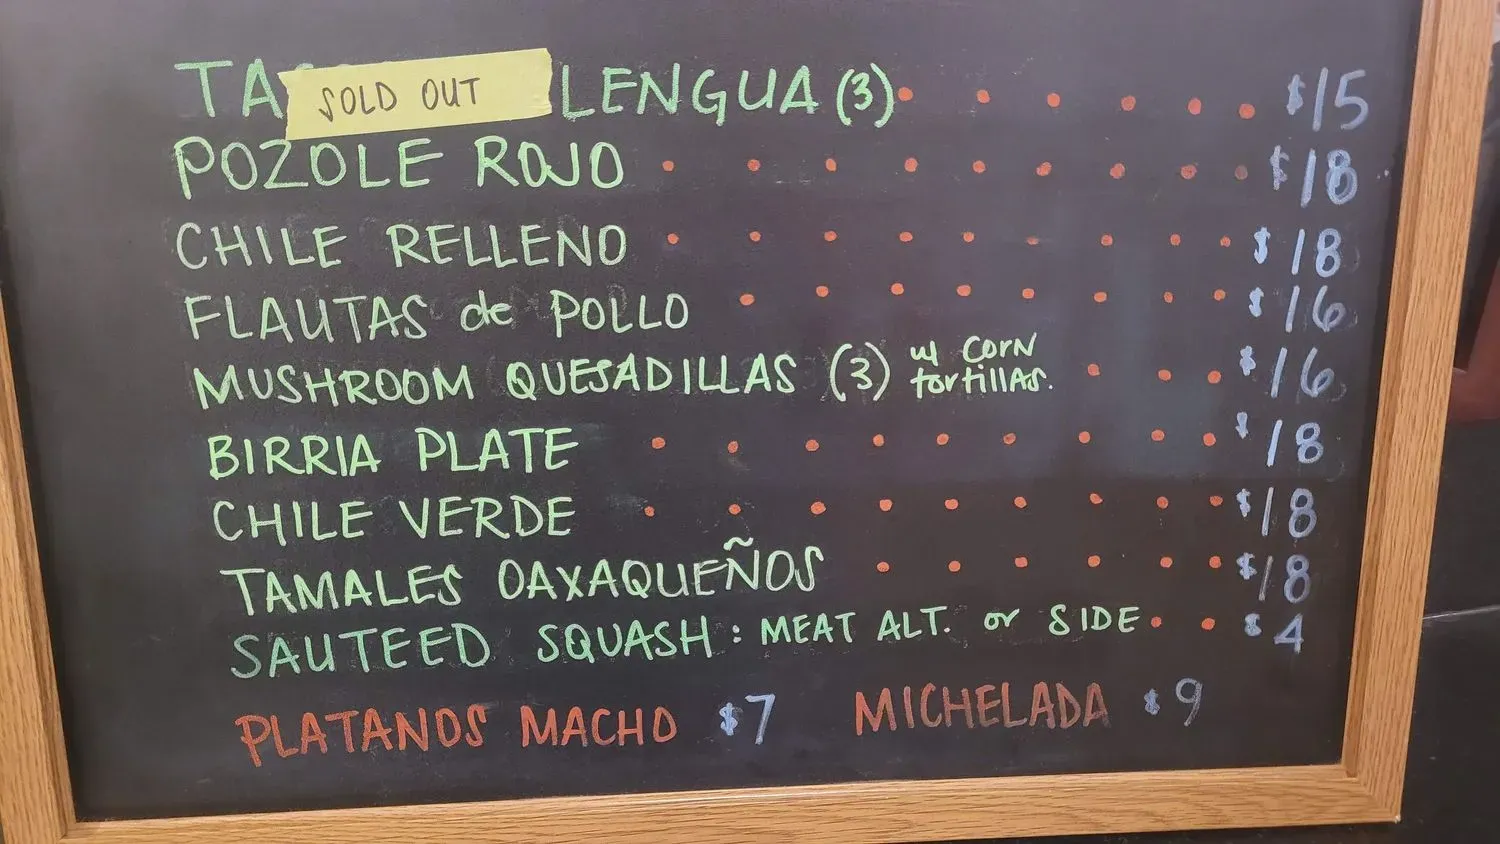 TA SOLD OUT LENGUA (3) $15
POZOLE ROJO $18
CHILE RELLENO $18
FLAUTAS de POLLO $16
MUSHROOM QUESADILLAS (3) w/ CORN tortillAS. $16
BIRRIA PLATE $18
CHILE VERDE $18
TAMALES OAXAQUEÑOS $18
SAUTEED SQUASH : MEAT ALT. or SIDE $4
PLATANOS MACHO $7 MICHELADA $9